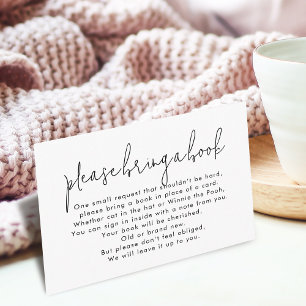 please bring a book
One small request that shouldn't be hard,
Please bring a book in place of a card.
Whether cat in the hat or Winnie the Pooh,
You can sign in inside with a note from you.
Your book will be cherished,
Old or brand new.
But please don't feel obliged,
We will leave it up to you.